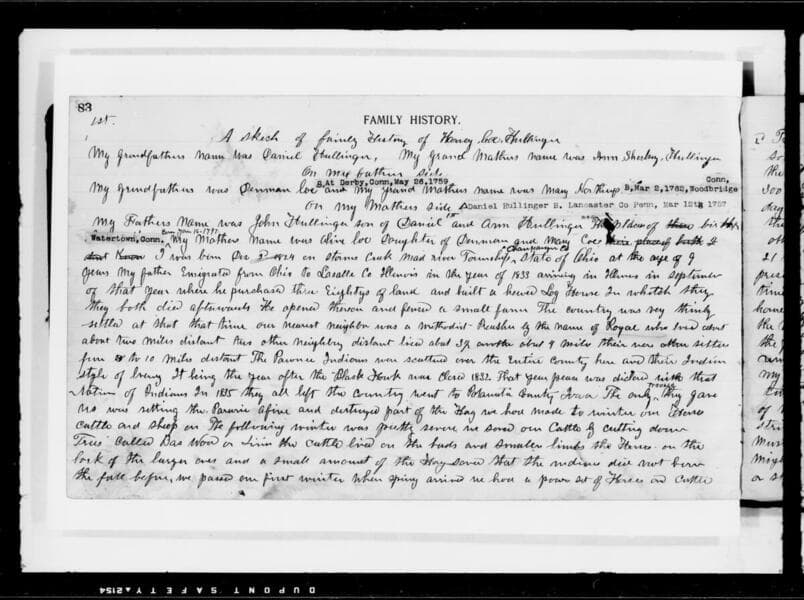 83
FAMILY HISTORY.
1st.
A skech of family History of Henry Coe Hullinger
My Grandfathers name was Daniel Hullinger, My Grand Mothers name was Ann Sherley Hullinger
On my fathers side
B, At Derby, Conn, May 26, 1759
Conn,
My grandfathers was Denman Coe and my grand Mothers name was Mary Northrup B, Mar 2, 1762, Woodbridge
on my Mothers side Daniel Hullinger B. Lancaster Co Penn, Mar 12th 1757
My Fathers Name was John Hullinger son of Daniel and Ann Hullinger The place of birth
Watertown, Conn. My Mothers Name was Olive Coe Daughter of Denman and Mary Coe their place of birth I
Champaign Co
I was born Dec 1824 on Storms Creek Mad river Township State of Ohio at the age of 9
years My father Emigrated from Ohio to Lasalle Co Illinois in the year of 1833 arriving in Illinois in september
of that year where he purchased three Eightys of land and built a hewed Log House In which they
they both died afterwards He opened thereon and fenced a small farm The country was very thinly
settled at that time our nearest neighbor was a Methodist Preacher by the name of Royal who lived about
about two miles distant two other neighbors distant lived about 3½ another about 4 miles their were other settlers
from 8 to 10 miles distant The Pawnee Indians was scattered over the Entire County here and their Indian
style of living It being the year after the Black Hawk war Closed 1832. That year peace was declared with that
nation of Indians In 1835 they all left the country went to County Iowa The only trouble they gave
us was setting the Prairie afire and destroyed part of the Hay we had made to winter our Horses
cattle and sheep on The following winter was pretty severe we saved our Cattle by cutting down
Trees Called Bas Wood or Linn the Cattle lived on the buds and smaller limbs the Horses on the
bark of the larger ones and a small amount of the Hay saved that the indians did not burn
the fall before, we passed our first winter when spring arrived we had a poor set of Horses and Cattle
DUPONT SAFETY 2154